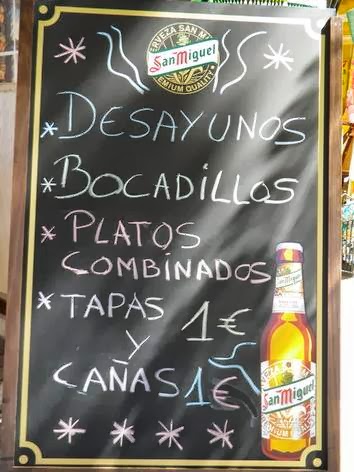 CERVEZA SAN MIGUEL
San Miguel
PREMIUM QUALITY
* DESAYUNOS
* BOCADILLOS
* PLATOS
COMBINADOS
* TAPAS 1€
Y
CAÑAS 1€
* * * *
San Miguel
San Miguel